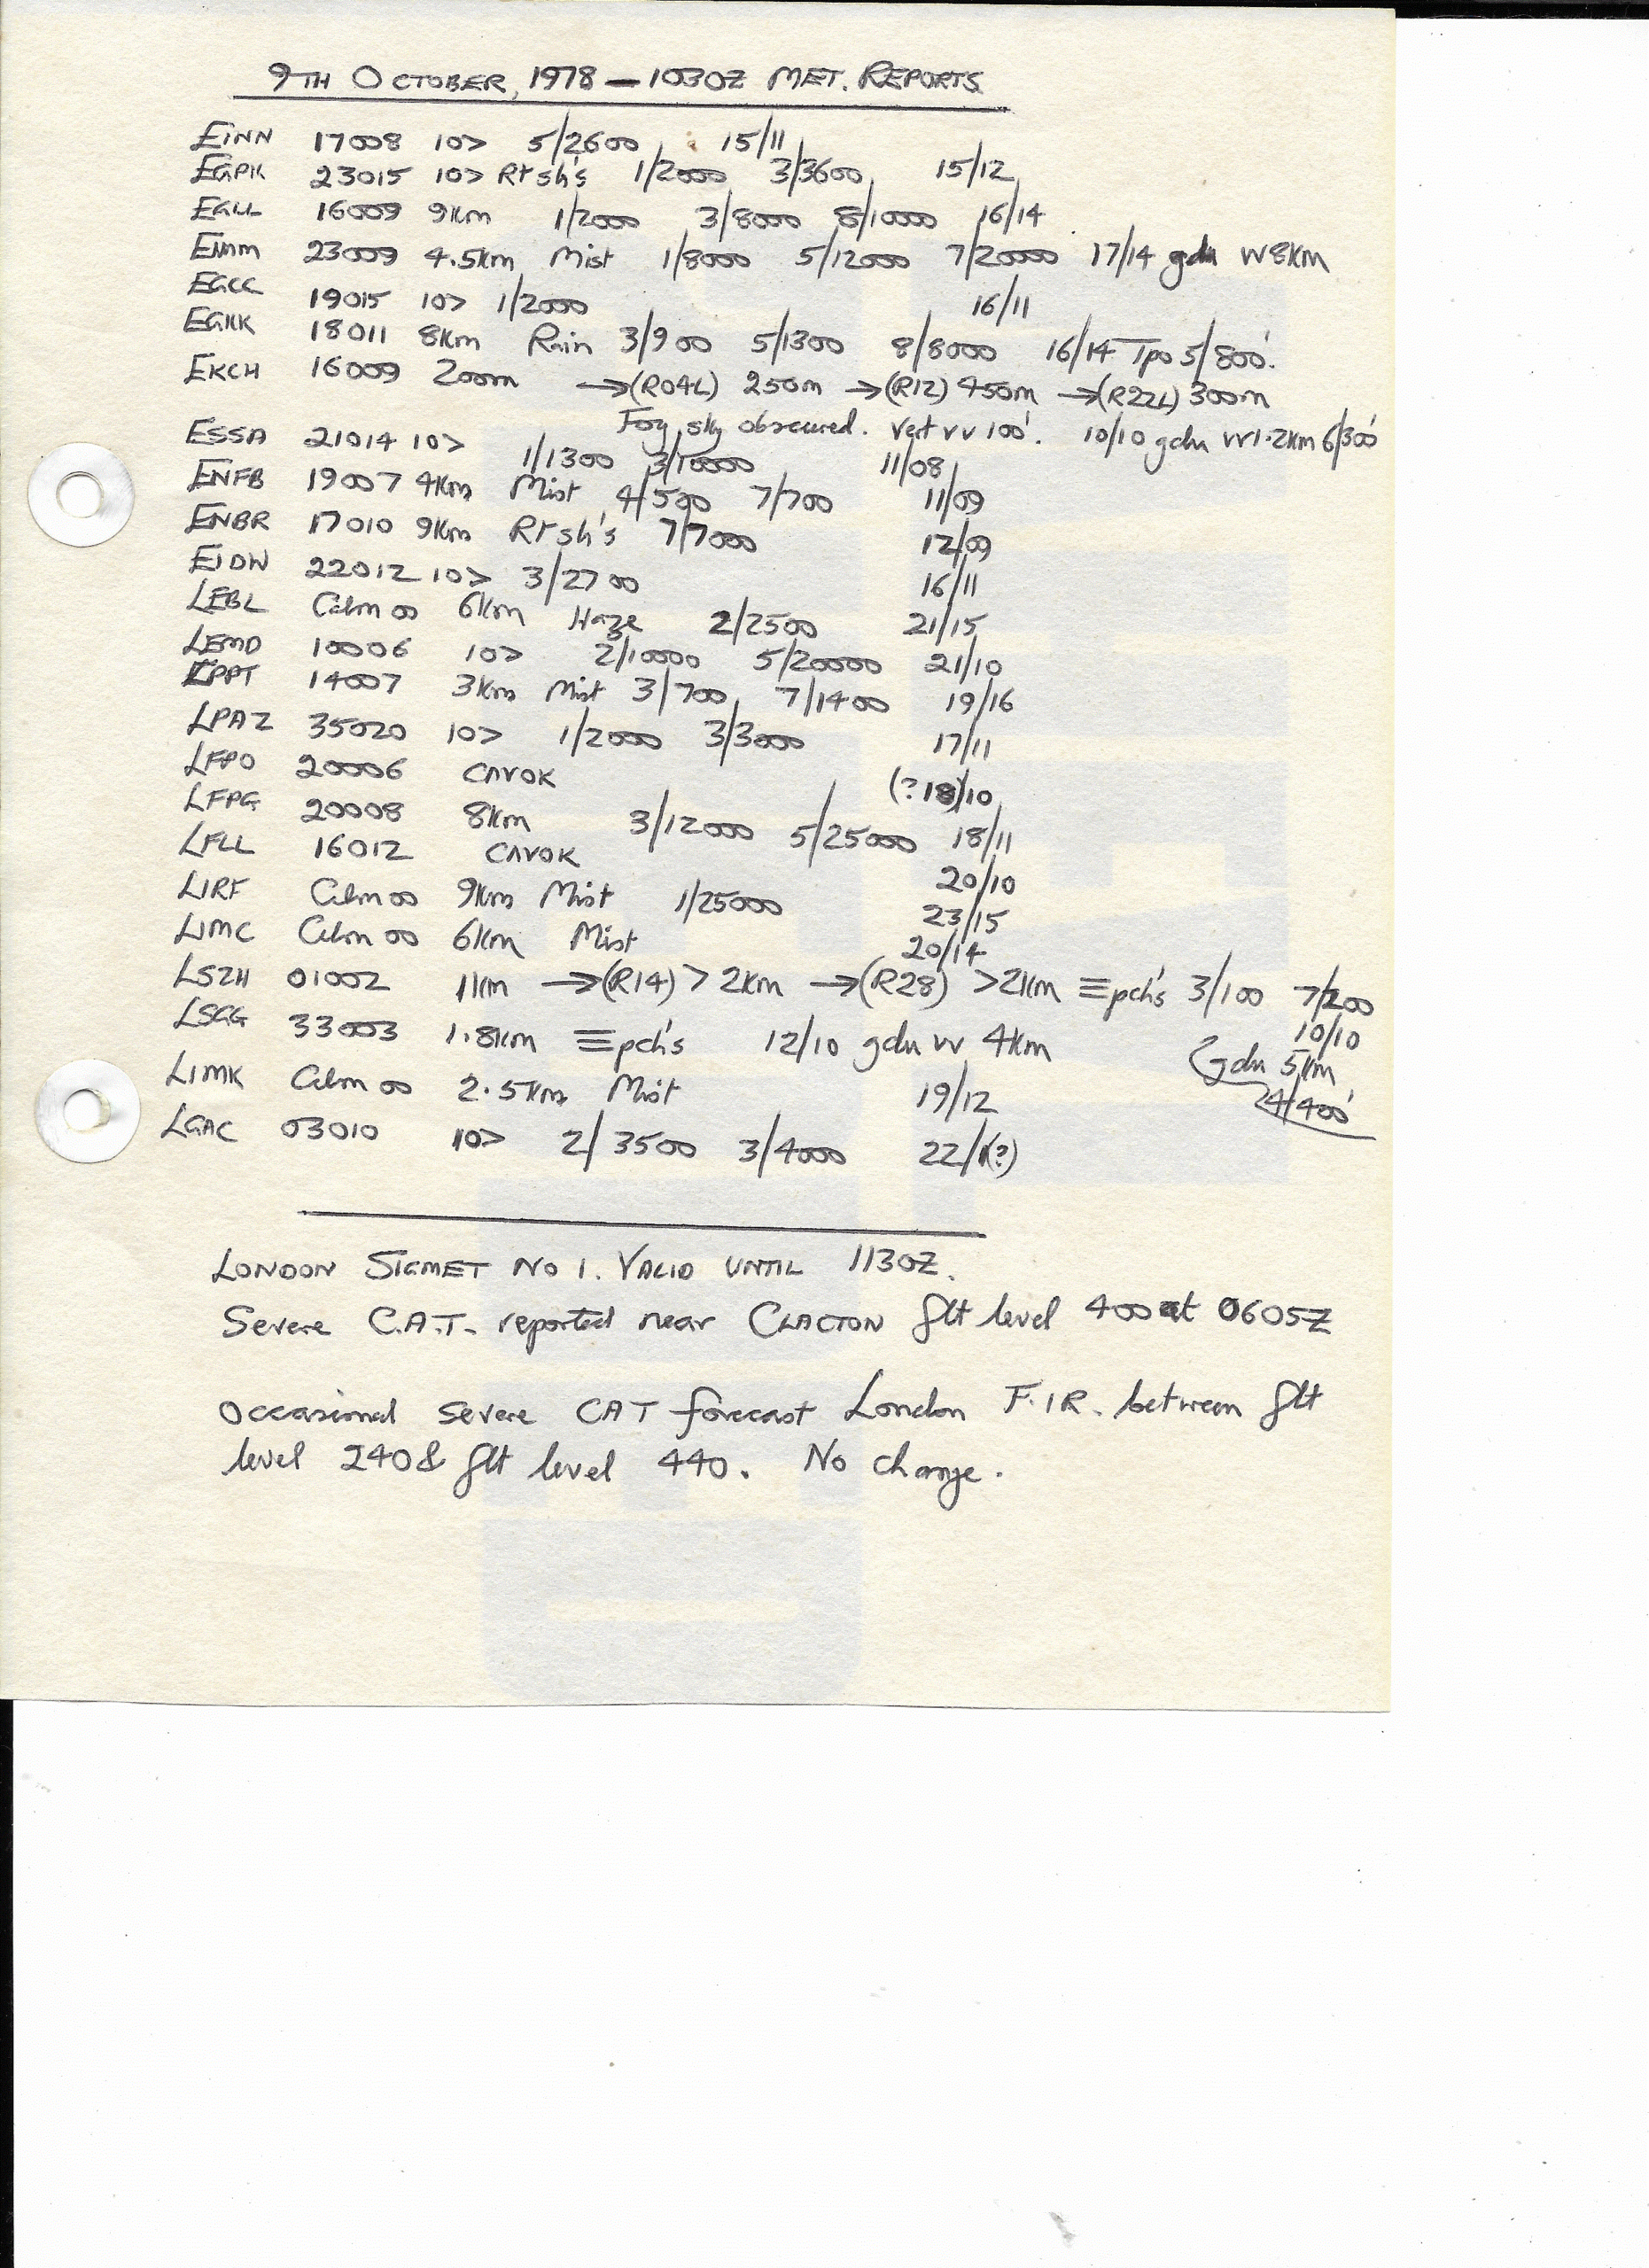 9TH OCTOBER, 1978 — 1030Z MET. REPORTS
EINN 17008 10> 5/2600 15/11
EGPK 23015 10> Rr sh's 1/2000 3/3600 15/12
EGLL 16009 9Km 1/2000 3/8000 8/10000 16/14
23009 4.5Km Mist 1/8000 5/12000 7/20000 17/14 gdu vv 8Km
EGCC 19015 10> 1/2000 16/11
EGKK 18011 8Km Rain 3/900 5/1300 8/8000 16/14 Tpo 5/800'.
EKCH 16009 200m →(R04L) 250m →(R12) 450m →(R22L) 300m
Fog, sky obscured. Vert vv 100'. 10/10 gdu vv 1.2Km 6/300'
ESSA 21014 10> 1/1300 3/10000 11/08
ENFB 19007 4Km Mist 4/500 7/700 11/09
ENBR 17010 9Km Rr sh's 7/7000 12/09
EIDW 22012 10> 3/2700 16/11
LEBL Calm 00 6Km Haze 2/2500 21/15
LEMD 10006 10> 2/10000 5/20000 21/10
LPPT 14007 3Km Mist 3/700 7/1400 19/16
LPAZ 35020 10> 1/2000 3/3000 17/11
LFPO 20006 CAVOK (?18)/10
LFPG 20008 8Km 3/12000 5/25000 18/11
LFLL 16012 CAVOK 20/10
LIRF Calm 00 9Km Mist 1/25000 23/15
LIMC Calm 00 6Km Mist 20/14
LSZH 01002 1Km →(R14) > 2Km →(R28) >2Km ≡pch's 3/100 7/200
10/10
LSGG 33003 1.8Km ≡pch's 12/10 gdu vv 4Km
gdu 5Km
4/400'
LIMK Calm 00 2.5Km Mist 19/12
LGAC 03010 10> 2/3500 3/4000 22/1(?)
LONDON SIGMET NO 1. VALID UNTIL 1130Z.
Severe C.A.T. reported near CLACTON flt level 400 at 0605Z
Occasional severe CAT forecast London F.I.R. between flt
level 240 & flt level 440. No change.